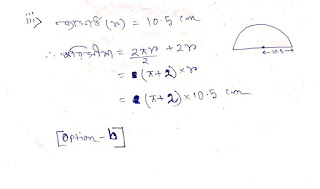 iii> ব্যাসার্ধ (r) = 10.5 cm
10.5
∴ পরিসীমা = 2πr/2 + 2r
= (π+2) × r
= (π+2) × 10.5 cm
[option - b]